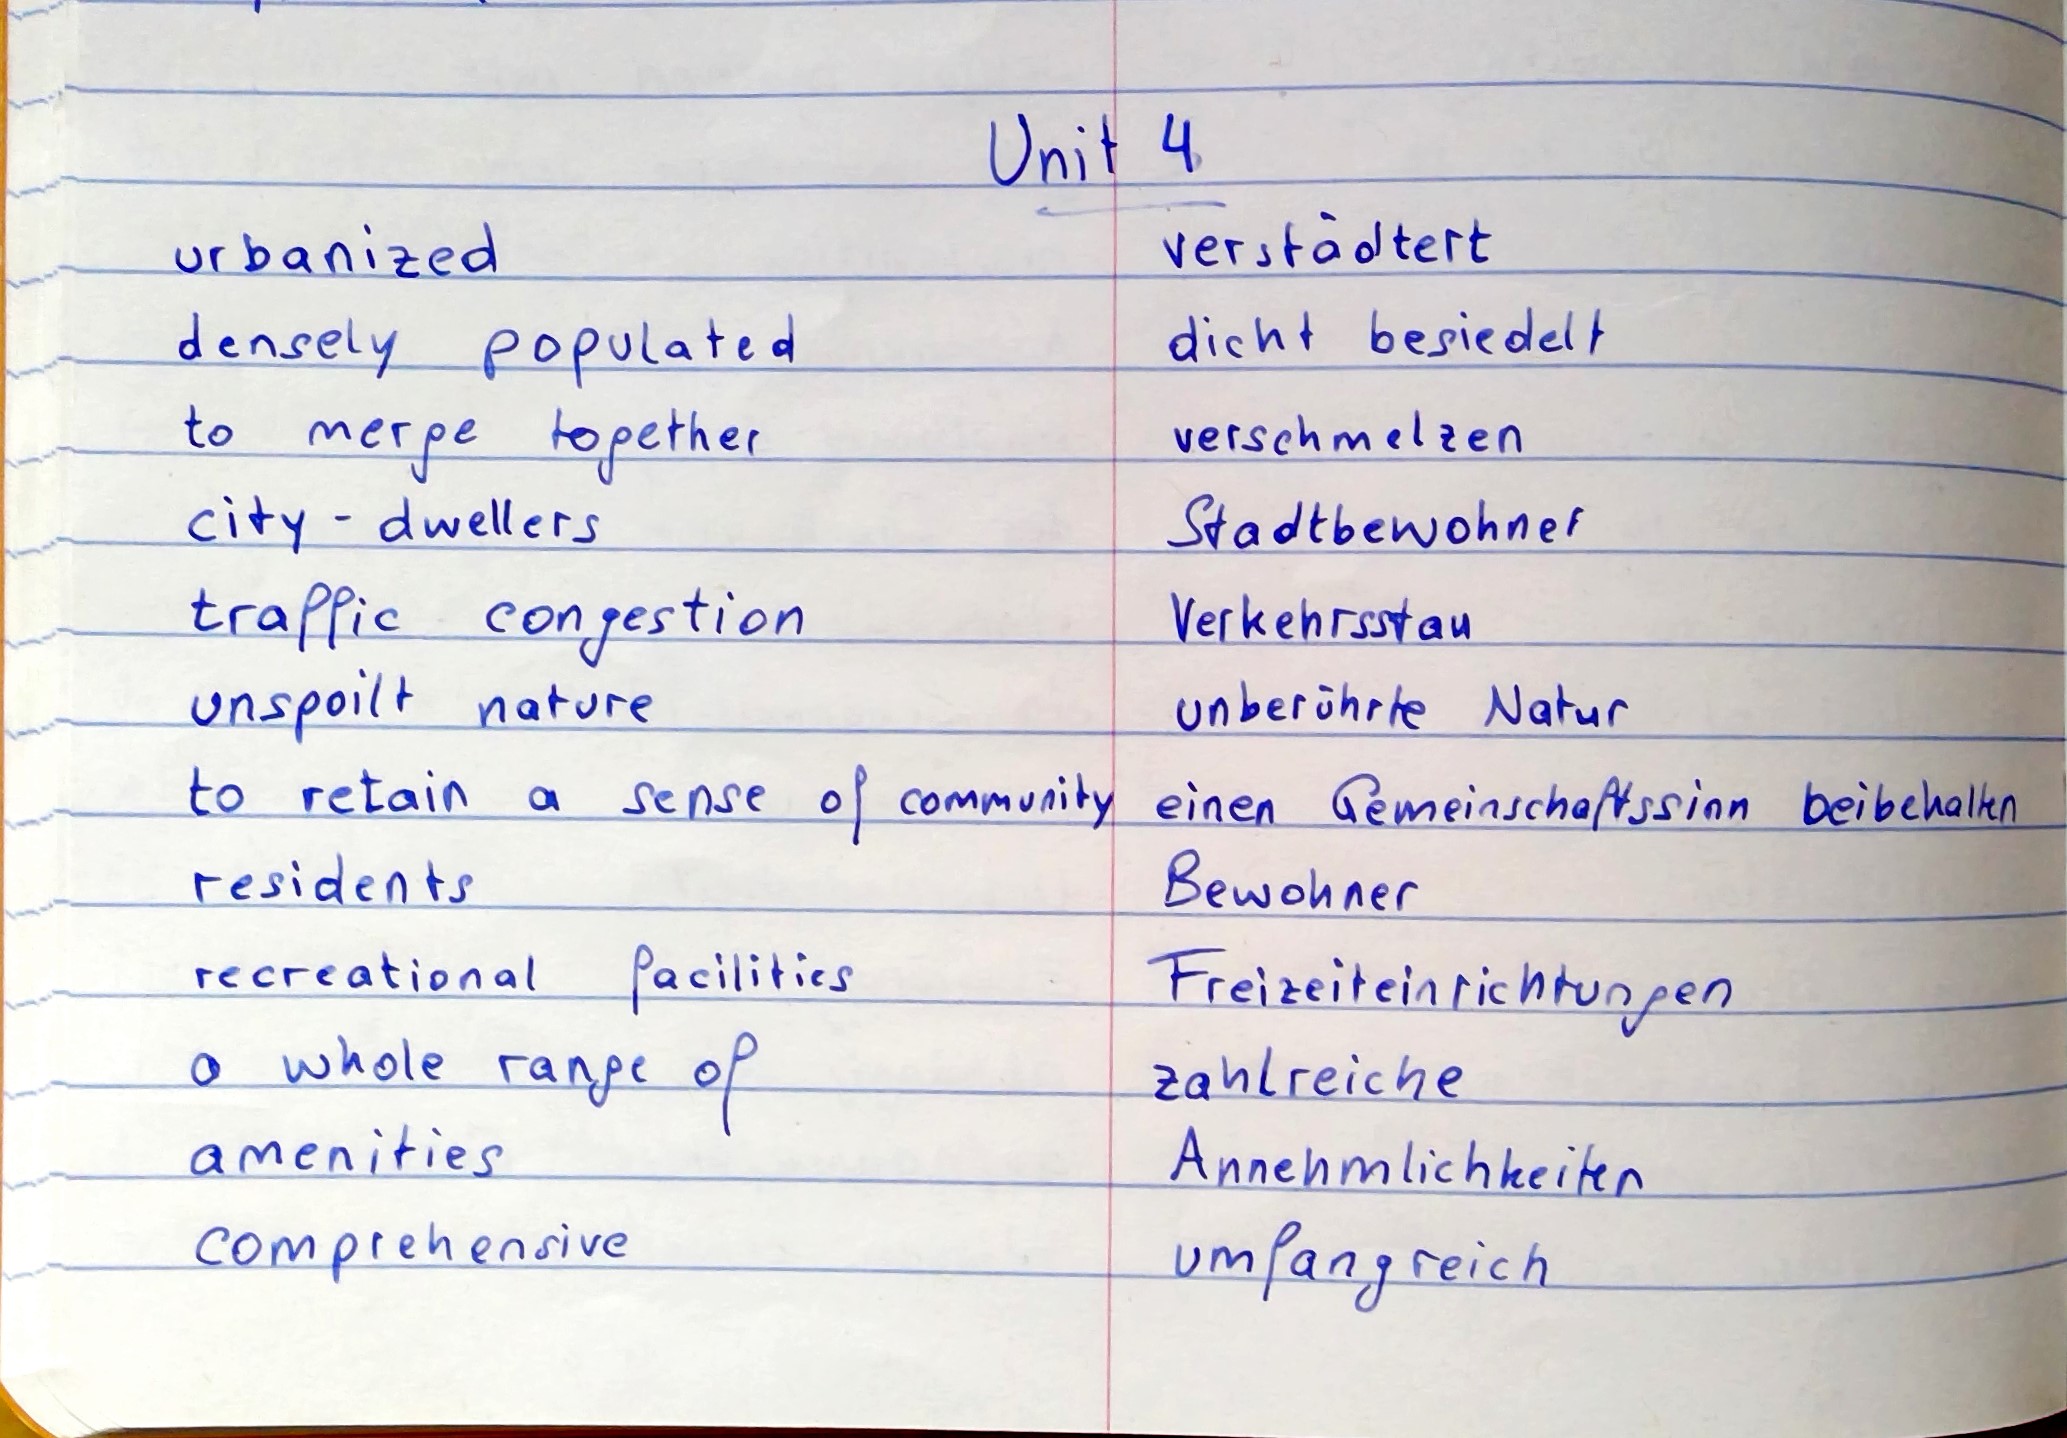 Unit 4
urbanized verstädtert
densely populated dicht besiedelt
to merge together verschmelzen
city-dwellers Stadtbewohner
traffic congestion Verkehrsstau
unspoilt nature unberührte Natur
to retain a sense of community einen Gemeinschaftssinn beibehalten
residents Bewohner
recreational facilities Freizeiteinrichtungen
a whole range of zahlreiche
amenities Annehmlichkeiten
comprehensive umfangreich